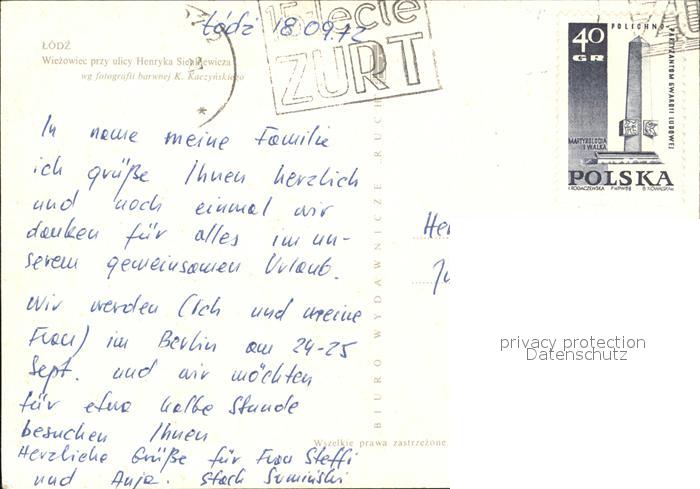 Łódź 18.09.72
15-lecie
ZURT
ŁÓDŹ
Wieżowiec przy ulicy Henryka Sienkiewicza
wg fotografii barwnej K. Kaczyńskiego
In name meine Familie
ich grüße Ihnen herzlich
und noch einmal wir
danken für alles im un-
serem gemeinsamen Urlaub.
Wir werden (Ich und meine
Frau) im Berlin am 24-25
Sept. und wir möchten
für etwa halbe Stunde
besuchen Ihnen
Herzliche Grüße für Frau Steffi
und Anja. Stach Sumiński
BIURO WYDAWNICZE RUCH
Wszelkie prawa zastrzeżone
40
GR
POLICHNO
PARTYZANTOM GWARDII LUDOWEJ
MARTYROLOGIA
I WALKA
POLSKA
Her
Ju
privacy protection
Datenschutz